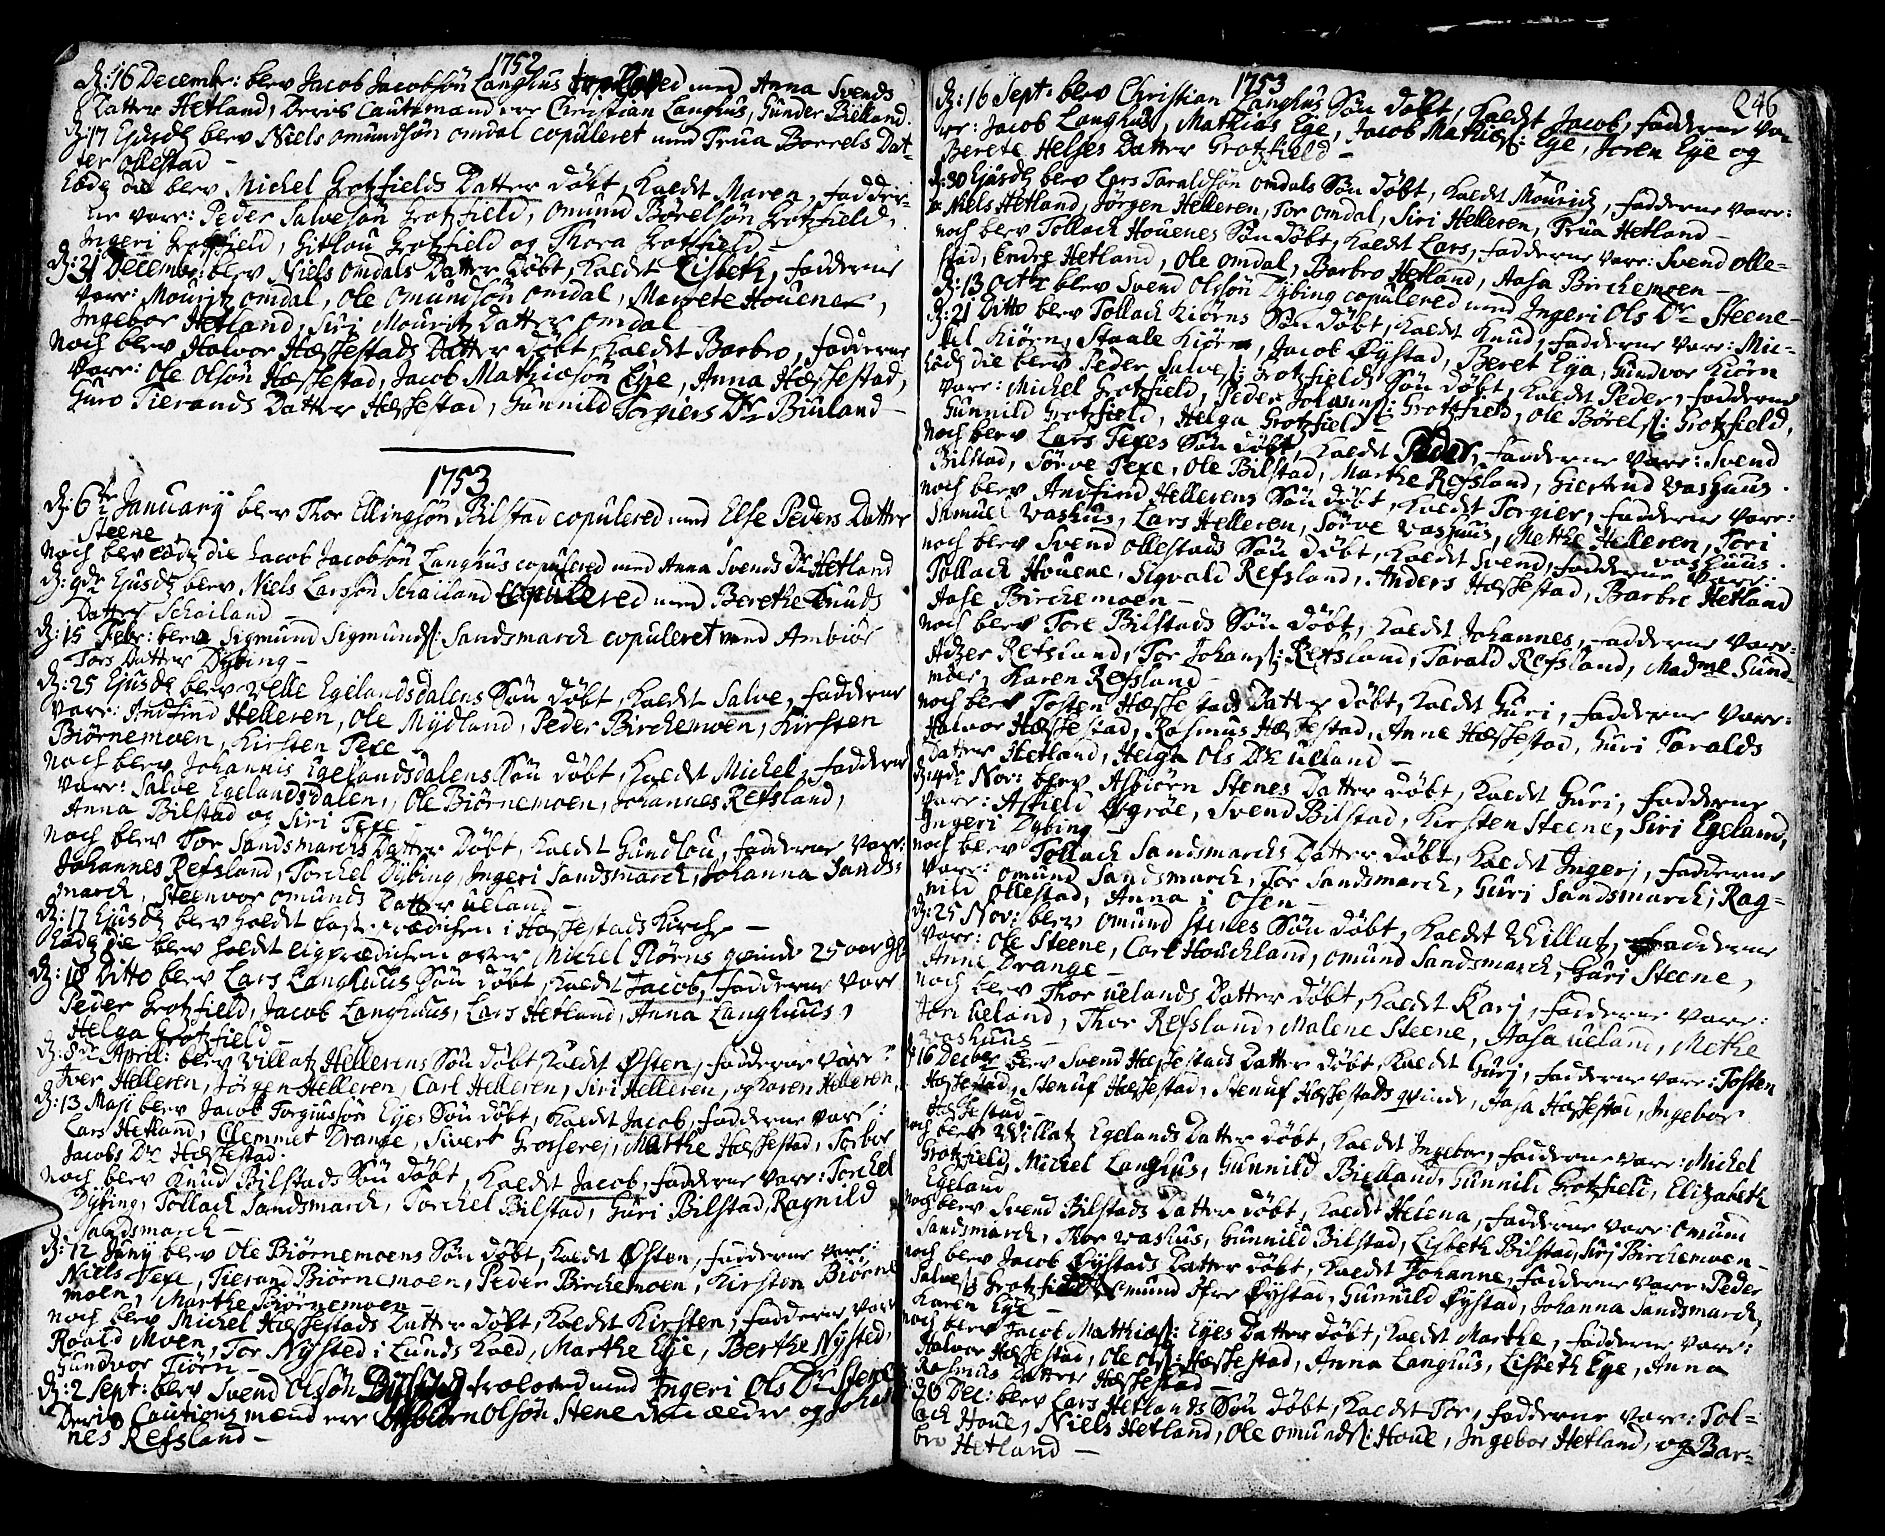 1752
d: 16 Decembr: blev Jacob Jacobsön Langhus med Anna Svends
Datter Hetland, Deris Cautsmænd ere Christian Langhus, Gunder Bielland.
d: 17 Ejusd blev Niels Omundsön Omdal copuleret med Trua Borrels Dat-
ter Ollestad –
Eod die blev Michel Grotzfields Datter döbt, kaldt Maren, Fadder-
ne vare: Peder Salvesön Grotzfield, Omund Börelsön Grotzfield,
Ingeri Grotzfield, Gitlou Grotzfield og Thora Grotzfield –
d: 21 Decembr: blev Niels Omdals Datter döbt, kaldt Lisbeth, Fadderne
vare: Mouritz Omdal, Ole Omundsön Omdal, Maurete Houene,
Ingebor Hetland, Siri Mouritz Datter Omdal
Noch blev Halvor Hæssestads Datter döbt, kaldt Barbro, Fadderne
vare: Ole Olsön Hæssestad, Jacob Mathiæsön Eye, Anna Hæssestad,
Guro Tierands Datter Hæssestad, Gunnild Torgiers Dr Biuland –
1753
d: 6te January blev Thor Ellingsön Bilstad copulered med Else Peders Datter
Steene
Noch blev eod die Jacob Jacobsön Langhus copulered med Anna Svends Dr Hetland
d: 9de Ejusd blev Niels Larsön Schailand Copulered med Berethe Knuds
Datter Schailand
d: 15 Febr: blev Sigmund Sigmunds: Sandsmarck copuleret med Ambiör
Tors Datter Dybing –
d: 25 Ejusd blev Velle Egelandsdalens Sön döbt, kaldt Salve, Fadderne
vare: Andfind Helleren, Ole Nydland, Peder Birchemoen, Kirsten
Biörnemoen, Kirsten Texe –
Noch blev Johannis Egelandsdalens Sön döbt, kaldt Michel, Fadderne
vare: Salve Egelandsdalen, Ole Biörnemoen, Johannes Refsland,
Anna Bilstad og Siri Texe –
Noch blev Tor Sandsmarcks Datter döbt, kaldt Gundlou, Fadderne vare:
Johannes Refsland, Torchel Dybing, Ingeri Sandsmarck, Johanna Sands-
marck, Steenvor Omunds Datter Ueland –
d: 17 Ejusd blev holdt i Hæssestads Kirche –
Eod die blev holdt ligprædichen over Michel qvinde 25 aar
d: 18 Ditto blev Lars Langhuus Sön döbt, kaldt Jacob, Fadderne vare
Peder Grotzfield, Jacob Langhuus, Lars Hetland, Anna Langhuus,
Helga Grotzfield –
d: 8de April: blev Villatz Hellerens Sön döbt, kaldt Østen, Fadderne vare:
Iver Helleren, Jörgen Helleren, Carl Helleren, Siri Helleren, og Karen Helleren,
d: 13 Maji blev Jacob Torgiussön Eyes Sön döbt, kaldt Jacob, Fadderne vare:
Lars Hetland, Clemmet Drange, Sivert Grosserej, Marthe Hæssestad, Torbor
Jacobs Dr Hæssestad.
Noch blev Knud Bilstads Sön döbt, kaldt Jacob, Fadderne vare: Torchel
Dybing, Tollack Sandsmarck, Torchel Bilstad, Guri Bilstad, Ragnild
Sandsmarck –
d: 12 Juny blev Ole Biörnemoens Sön döbt, kaldt Østen, Fadderne vare:
Niels Texe, Tierand Biörnemoen, Peder Birchemoen, Kirsten Biörne
moen, Marthe Biörnemoen –
Noch blev Michel Hæssestads Datter döbt, kaldt Kirsten, Fadderne vare
Roald Moen, Tor Nysted i Lunds Kald, Marthe Eye, Berthe Nysted,
Gundvor Tiörn –
d: 2 Sept: blev Svend Olsön trolovred med Ingeri Ols Dr Stene
Deris Cautions mænd ere Asbiörn Olsön Stene den ældre og Johan-
nes Refsland –
1753
246
d: 16 Sept: blev Christian Langhus Sön döbt, kaldt Jacob, Fadderne va-
re: Jacob Langhus, Mathias Eye, Jacob Mathiæs: Eye, Joren Eye og
Berete Helges Datter Grotzfield –
d: 30 Ejusd blev Lars Taraldsön Omdals Sön döbt, kaldt Mouritz, Fadderne vare:
Niels Hetland, Jörgen Helleren, Tor Omdal, Siri Helleren, Trua Hetland –
Noch blev Tollack Houenes Sön döbt, kaldt Lars, Fadderne vare: Svend Olle-
stad, Endre Hetland, Ole Omdal, Barbro Hetland, Aasa Birchemoen –
d: 13 Octbr blev Svend Olsön Dybing copulered med Ingeri Ols Dr Steene –
d: 21 Ditto blev Tollack Kiörns Sön döbt, kaldt Knud, Fadderne vare: Mic-
kel Kiörn, Staale Kiörn, Jacob Øystad, Beret Eya, Gundvor Kiörn
Eod die blev Peder Salves: Grotzfields Sön döbt, kaldt Peder, Fadderne
vare: Michel Grotzfield, Peder Johanns: Grotzfield, Ole Börels: Grotzfield,
Gunnild Grotzfield, Helga Grotzfield –
Noch blev Lars Texes Sön döbt, kaldt Peder, Fadderne vare: Svend
Bilstad, Sörve Texe, Ole Bilstad, Marthe Refsland, Giertrud Vashuus.
Noch blev Andfind Hellerens Sön döbt, kaldt Torgier, Fadderne vare:
Samuel Vashus, Lars Helleren, Sörve Vashuus, Methe Helleren, Tori
Vashuus.
Noch blev Svend Ollestads Sön döbt, kaldt Svend, Fadderne vare:
Tollack Houene, Sigvald Refsland, Anders Hæssestad, Barbro Hetland
Aase Birchemoen –
Noch blev Tore Bilstads Sön döbt, kaldt Johannes, Fadderne vare:
Adzer Refsland, Tor Johans: Refsland, Tarald Refsland, Madme Gund-
mdes, Karen Refsland –
Noch blev Tosten Hæssestads Datter döbt, kaldt Guri, Fadderne vare:
Halvor Hæssestad, Rasmus Hæssestad, Anne Hæssestad, Guri Taralds
Datter Hetland, Helga Ols Dr Ulland –
d: 4de Nov: blev Asbiörn Stenes Datter döbt, kaldt Guri, Fadderne
vare: Asfield Øgröe, Svend Bilstad, Kirsten Steene, Siri Egeland,
Ingeri Dybing
Noch blev Tollack Sandsmarcks Datter döbt, kaldt Ingerj, Fadderne
vare: Omund Sandsmarck, Tor Sandsmarck, Guri Sandsmarck, Rag-
nild Ollestad, Anna i Osen –
d: 25 Nov: blev Omund Stenes Sön döbt, kaldt Willatz, Fadderne
vare: Ole Steene, Carl Houckland, Omund Sandsmarck, Guri Steene,
Anne Drange –
Noch blev Thor Uelands Datter döbt, kaldt Karj, Fadderne vare:
Jon Ueland, Thor Refsland, Malene Steene, Aasa Ueland, Methe
Vashuus –
d 16 Decbr blev Svend Hæssestads Datter döbt, kaldt Gurj, Fadderne vare: Tosten
Hæssestad, Stenuf Hæssestad, Stenuf Hæssestads qvinde, Aasa Hæssestad, Ingebor
Hæssestad –
Noch blev Willatz Egelands Datter döbt, kaldt Ingebor, Fadderne vare: Michel
Grotzfield, Michel Langhus, Gunnild Bielland, Gunnild Grotzfield, Elizabeth
Egeland
Noch blev Svend Bilstads Datter döbt, kaldt Helena, Fadderne vare: Omund
Sandsmarck, Thor Vashus, Gunnild Bilstad, Lisbeth Bilstad, Siri Birchemoen –
Noch blev Jacob Øystads Datter döbt, kaldt Johanne, Fadderne vare: Peder
Salves: Grotzfield, Omund Ifre Øystad, Gunnild Øystad, Johanna Sandsmarck,
Karen Eye –
Noch blev Jacob Matthiæs: Eyes Datter döbt, kaldt Marthe, Fadderne vare:
Halvor Hæssestad, Ole Ols: Hæssestad, Anna Langhus, Lisbeth Eye, Anna
Rasmus Datter Hæssestad –
26 Dec: blev Lars Hetlands Sön döbt, kaldt Tor, Fadderne vare: Tol-
lack Houe, Niels Hetland, Ole Omunds: Houe, Ingebor Hetland, og Bar-
bro Hetland –